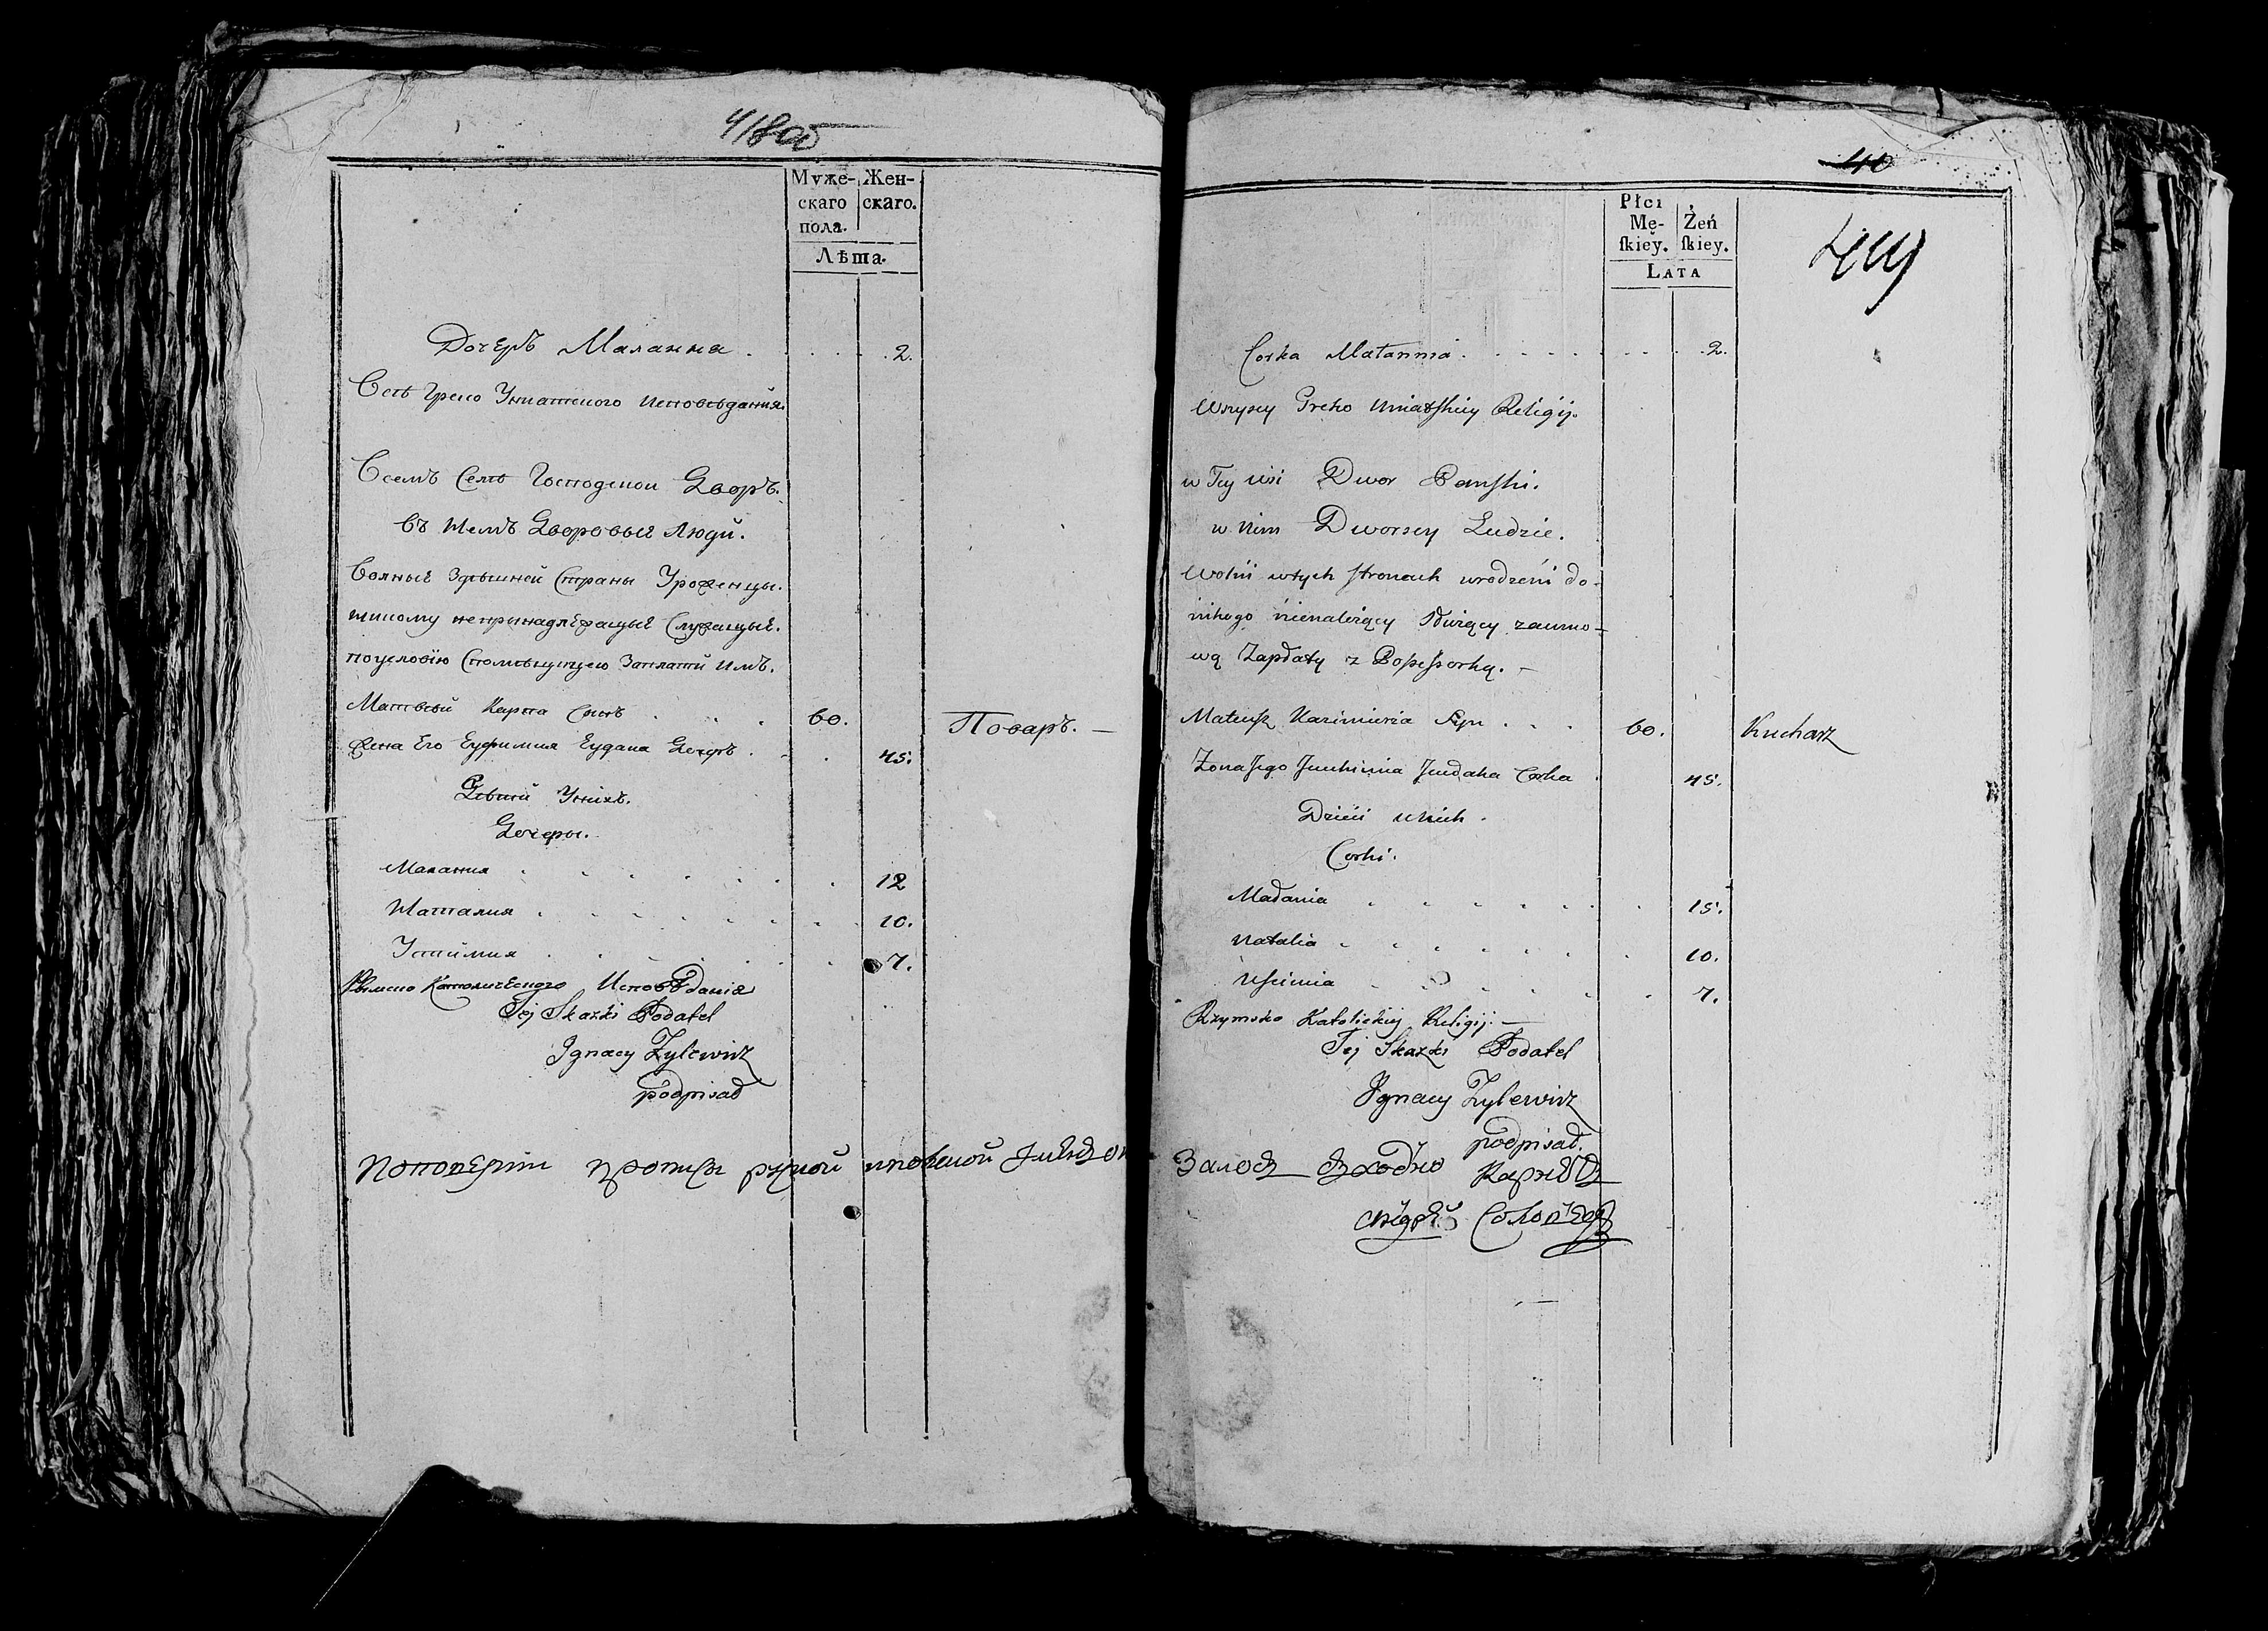 418об
Муже-
скаго
пола.
Жен-
скаго.
Лѣта.
Дочеръ Маланна . . . . 2.
Всѣ Греко Униатского исповѣдания.
Всемъ Селѣ Господской Дворъ.
Въ немъ Дворовые Люди.
Волные здѣшней Страны Уроженцы.
никому непринадлежащые Служащые.
поусловїю Спомѣщицею Заплатй имъ.
Матвѣй Карпа Сынъ . . . 60. Поваръ. —
Жена Его Еуфимия Еудака Дочеръ . . 45.
Дѣтй Унйхъ.
Дочеры.
Малания . . . . . . 12
Наталия . . . . . . 10.
Устймия . . . . . . 7.
Рымско Католического Исповѣдания
Tej Skazki Podatel
Ignacy Zylewicz
podpisał
40
419
Płci
Mę-
ſkiey.
Żeń
ſkiey.
LATA
Corka Małannia . . . . . 2.
Wszyscy Greko Uniatskiey Religij.
w Tey wsi Dwor Panski.
w nim Dworscy Ludzie.
Wolni wtych stronach urodzeni do-
nikogo nienalezący Służący zaumo-
wą Zapłaty z Possessorką. —
Mateusz Kazimierza Syn . . . 60. Kucharz
Zona Jego Juchimia Judaka Corka . 45.
Dzieci unich .
Corki.
Małania . . . . . . 15.
Natalia . . . . . . 10.
Uscimia . . . . . . 7.
Rzymsko Katolickiey Religij. —
Tej Skazki Podatel
Ignacy Zylewicz
podpisał.
рукой